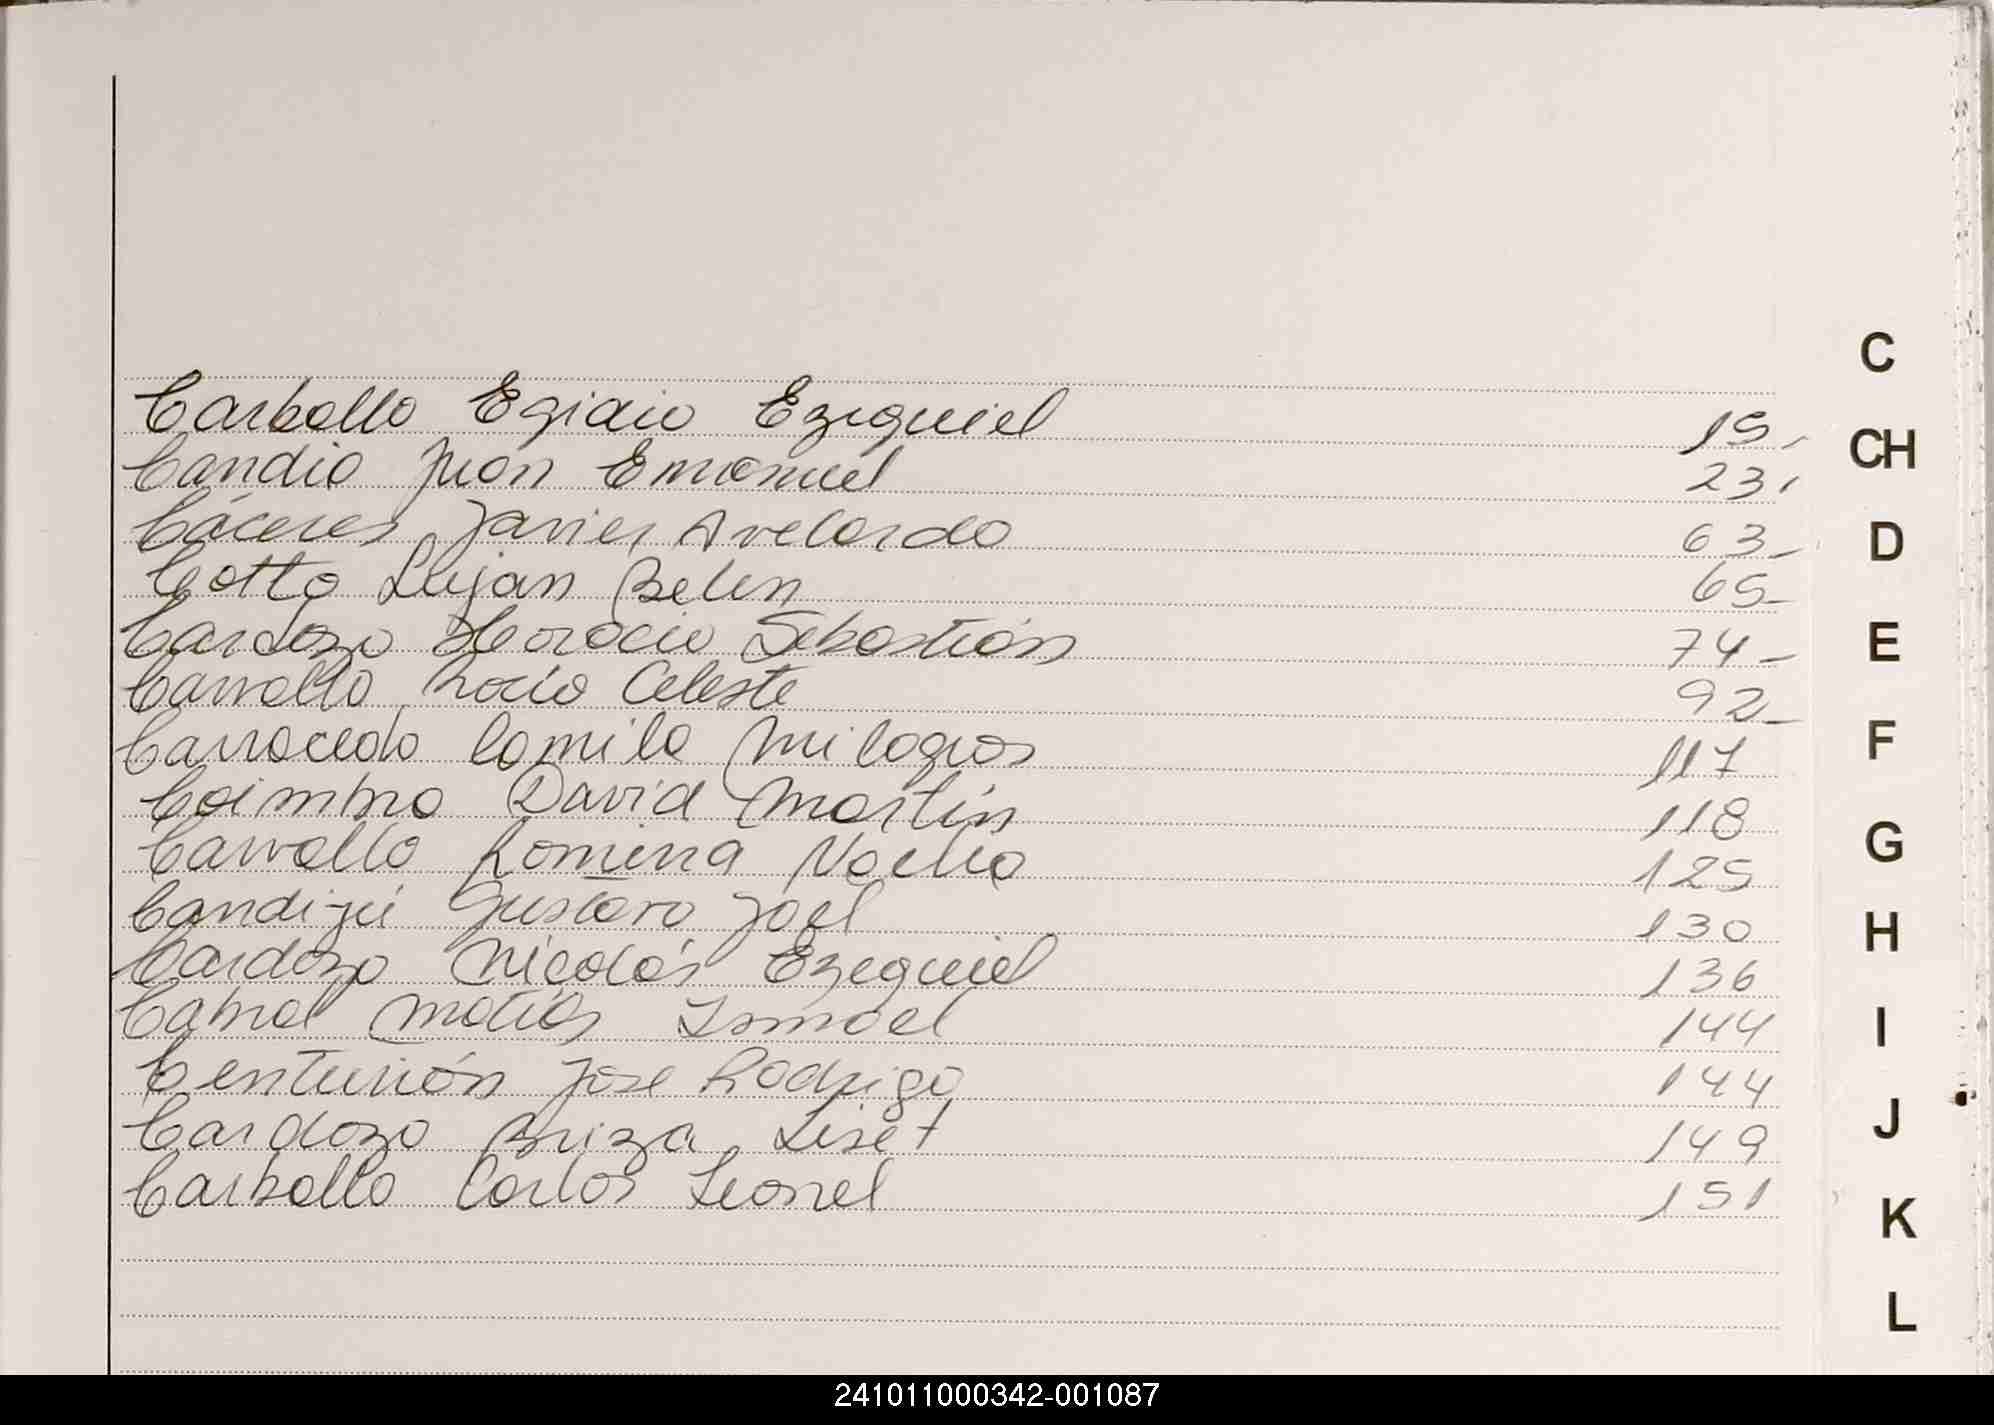 Carballo Egidio Ezequiel 15-
Candia Juan Emanuel 23,
Cáceres Javier Avelardo 63-
Cotto Lujan Belen 65-
Cardozo Horacio Sebastián 74-
Carvallo Rocio Celeste 92-
Carracedo Camila Milagros 117
Coimbra David Martín 118
Carvallo Romina Noelia 125
Gustavo Joel 130
Cardozo Nicolás Ezequiel 136
Cabral Matías Ismael 144
Centurión Jose Rodrigo 144
Cardozo Briza Liset 149
Carballo Carlos Leonel 151
C
CH
D
E
F
G
H
I
J
K
L
241011000342-001087